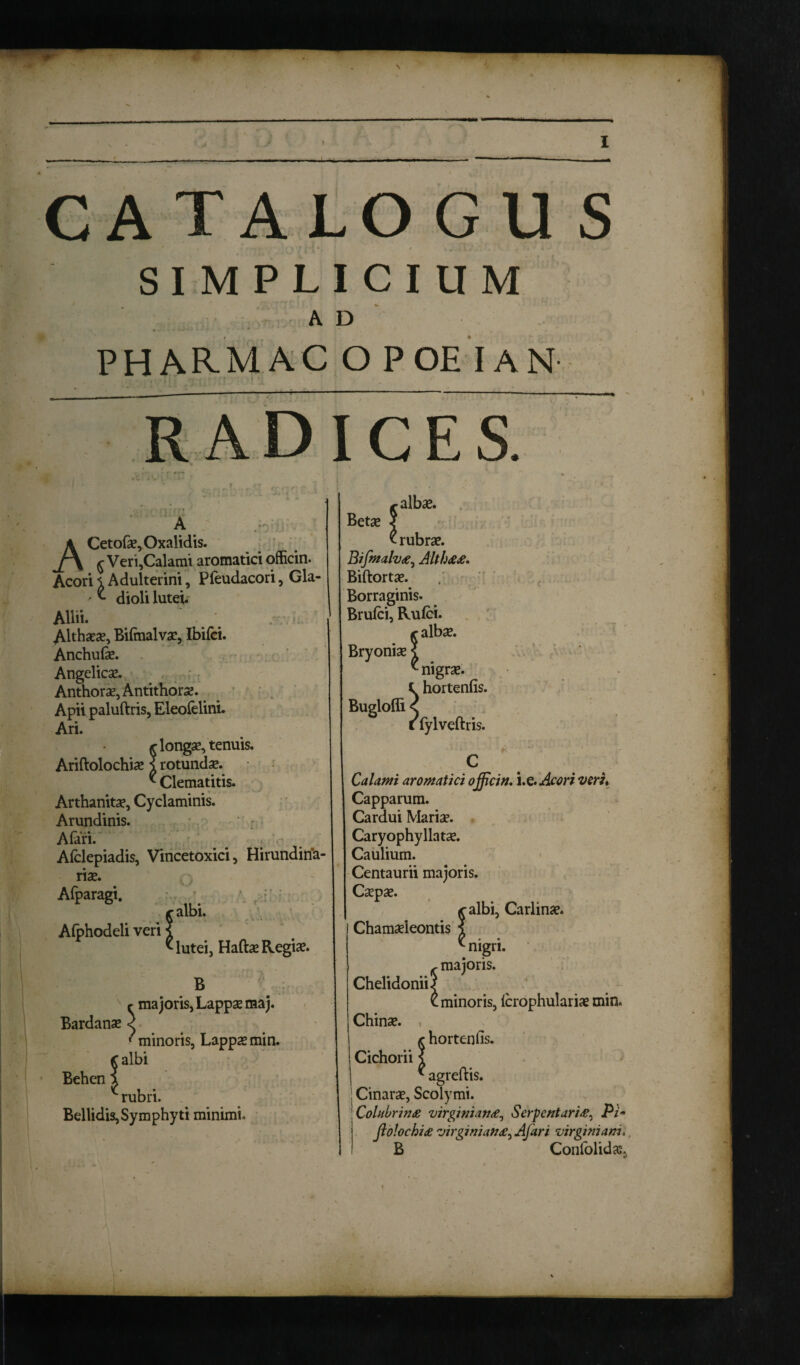 I
CATALOGUS
SIMPLICIUM
AD
PHARMACOPOEIAN
RADICES.
A
ACetoſæ, Oxalidis.
Acori { Veri, Calami aromatici officin.
Adulterini, Pſeudacori, Gla-
dioli lutei.
Allii.
Althææ, Biſmalvæ, Ibiſci.
Anchuſæ.
Angelicæ.
Anthoræ, Antithoræ.
Apii paluſtris, Eleoſelini.
Ari.
Ariſtolochiæ { longæ, tenuis.
rotundæ.
Clematitis.
Arthanitæ, Cyclaminis.
Arundinis.
Aſari.
Aſclepiadis, Vincetoxici, Hirundina-
riæ.
Aſparagi.
Aſphodeli veri { albi.
lutei, Haſtæ Regiæ.
B
Bardanæ { majoris, Lappæ maj.
minoris, Lappæ min.
Behen { albi
rubri.
Bellidis, Symphyti minimi.
Betæ { albæ.
rubræ.
Biſmalvæ, Althææ.
Biſtortæ.
Borraginis.
Bruſci, Ruſci.
Bryoniæ { albæ.
nigræ.
Bugloſſi { hortenſis.
ſylveſtris.
C
Calami aromatici officin. i.e. Acori veri.
Capparum.
Cardui Mariæ.
Caryophyllatæ.
Caulium.
Centaurii majoris.
Cæpæ.
Chamæleontis { albi, Carlinæ.
nigri.
Chelidonii { majoris.
minoris, ſcrophulariæ min.
Chinæ.
Cichorii { hortenſis.
agreſtis.
Cinaræ, Scolymi.
Colubrinæ virginianæ, Serpentariæ, Pi-
ſtolochiæ virginianæ, Aſari virginiani.
B Conſolidæ,